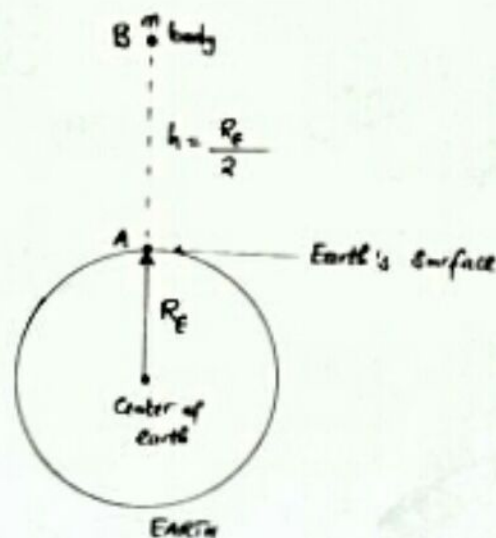 m
B body
h = R_E / 2
A
Earth's surface
R_E
Center of
earth
EARTH